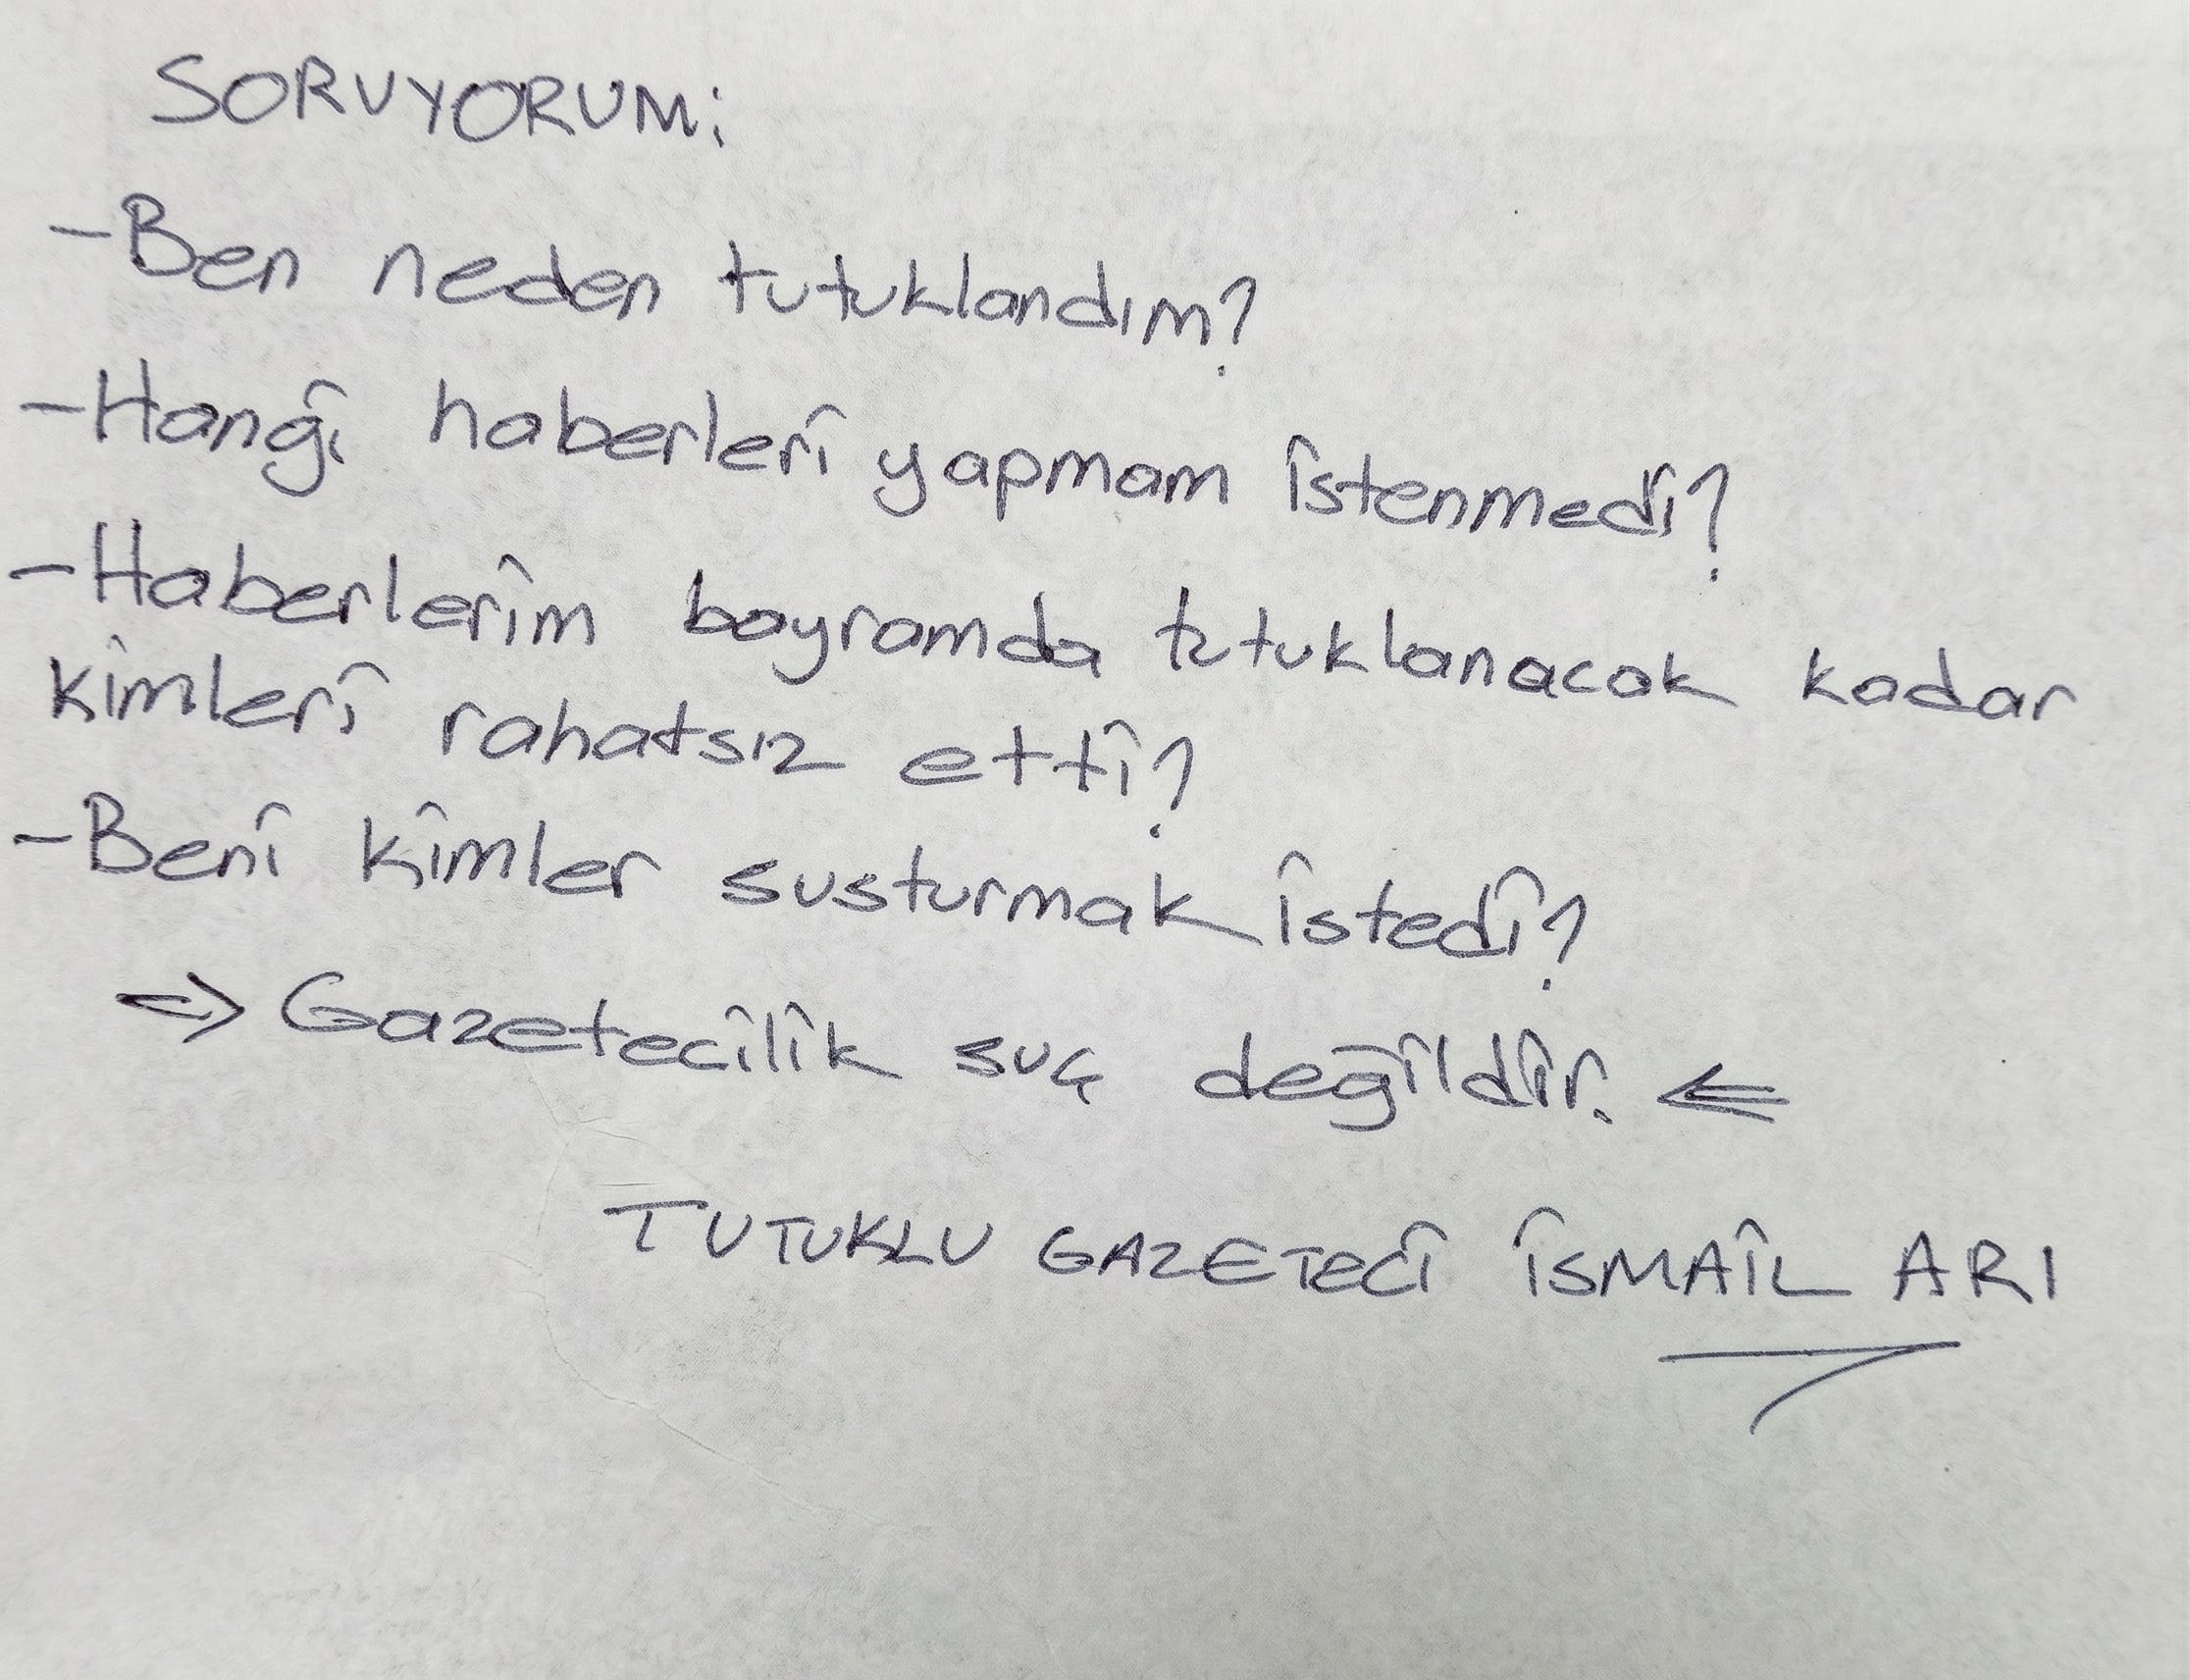 SORUYORUM;
-Ben neden tutuklandım?
-Hangi haberleri yapmam istenmedi?
-Haberlerim bayramda tutuklanacak kadar
kimleri rahatsız etti?
-Beni kimler susturmak istedi?
=> Gazetecilik suç değildir. <=
TUTUKLU GAZETECİ İSMAİL ARI